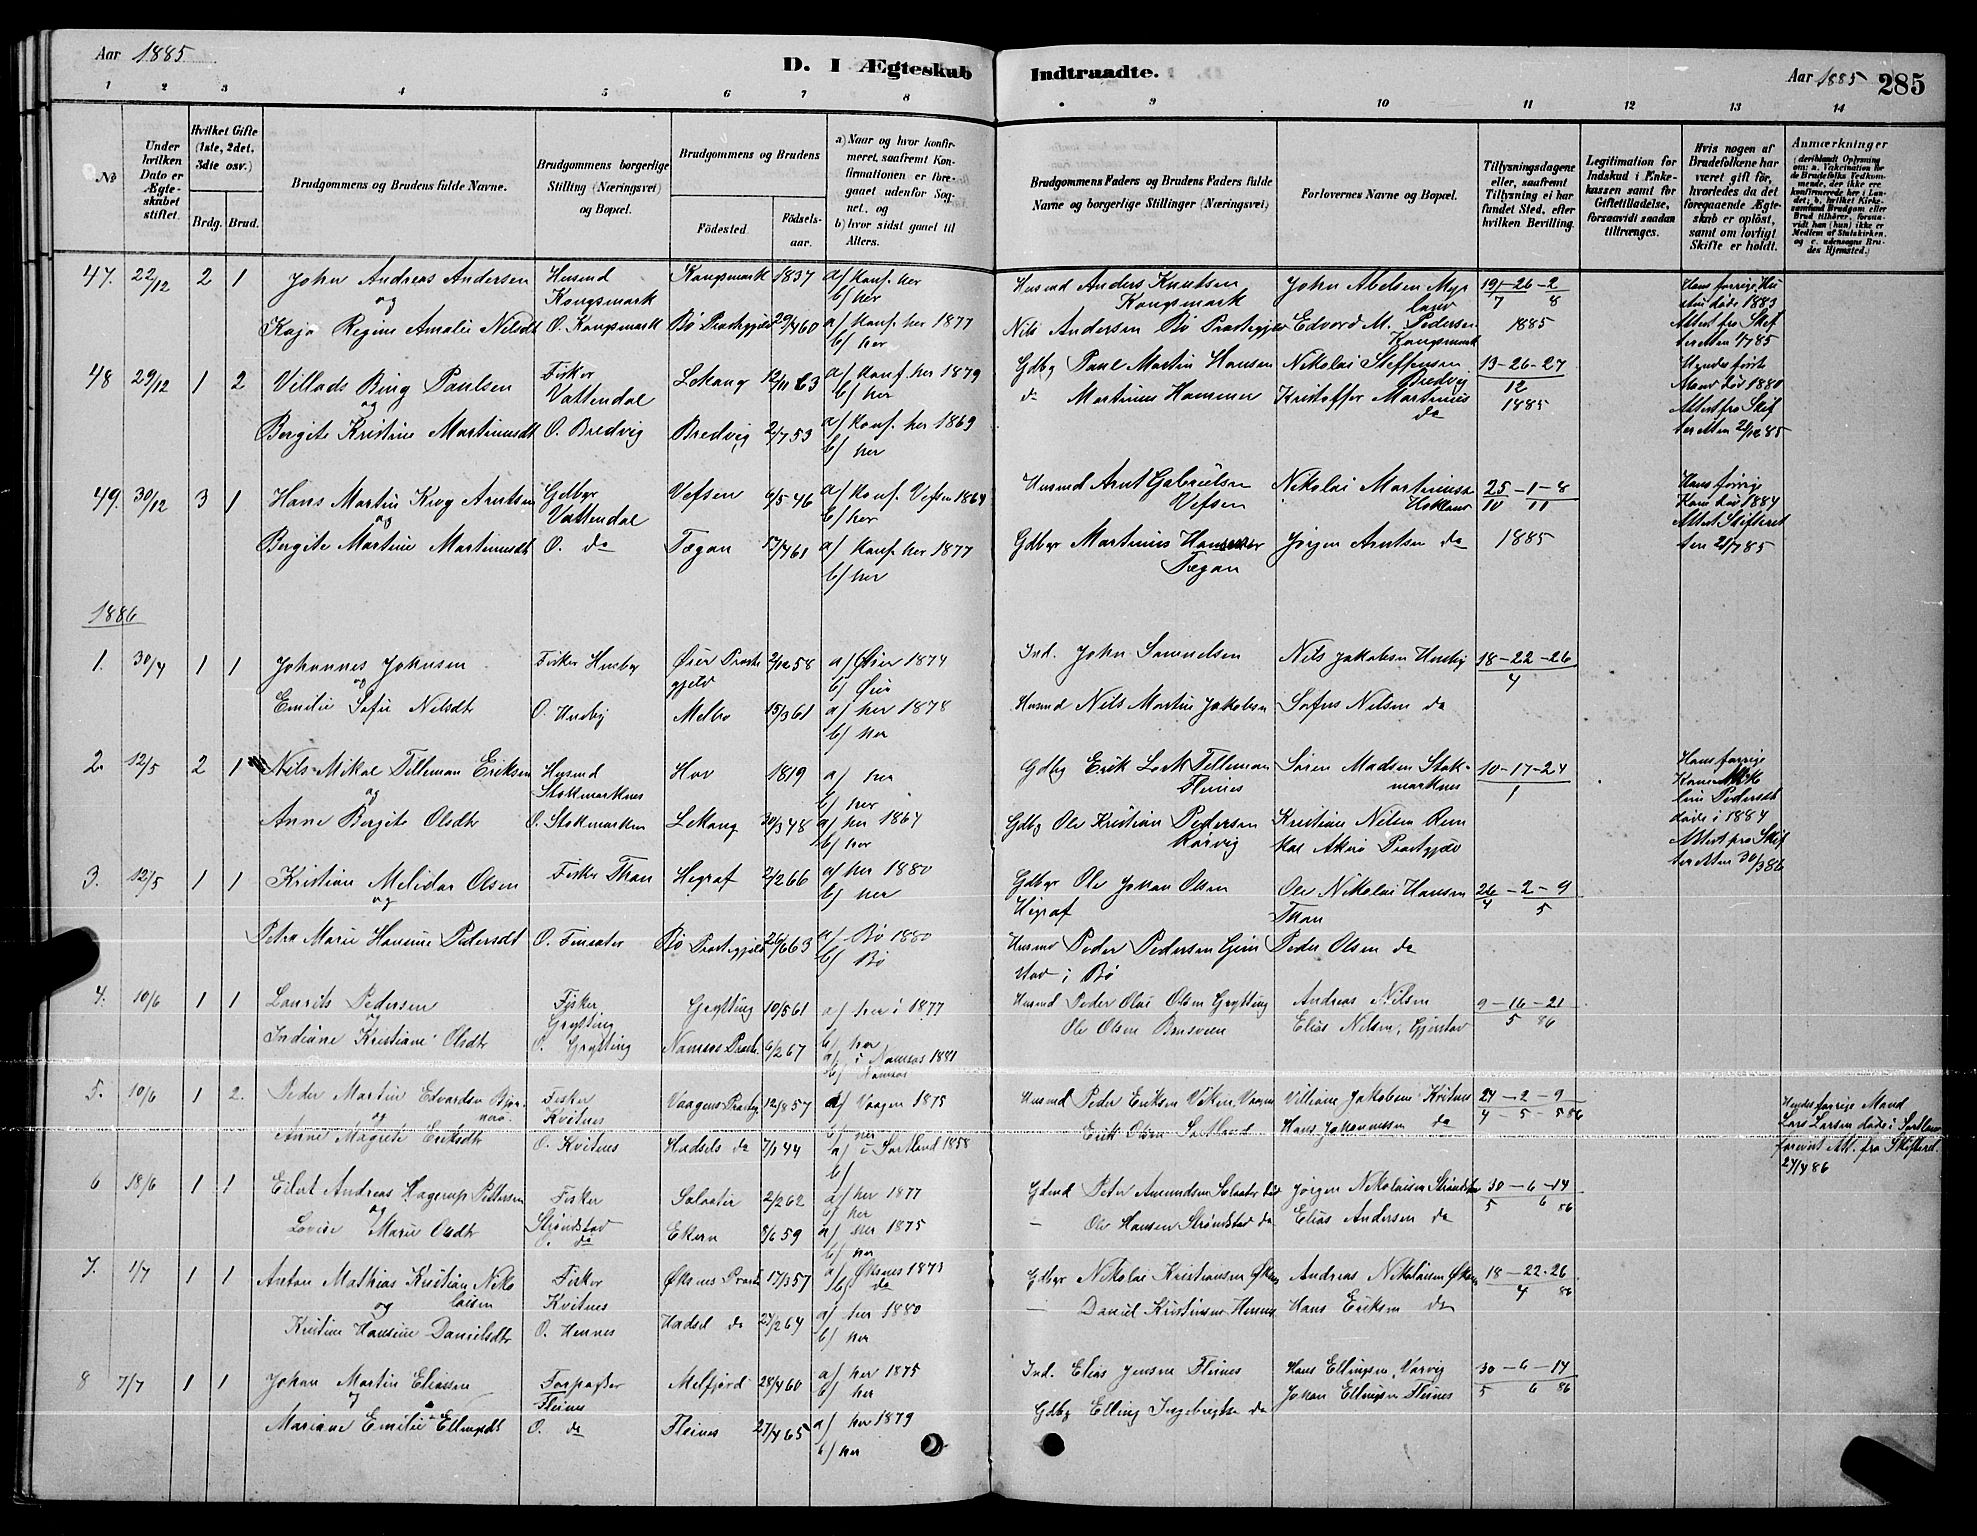 Aar 1885
D. I Ægteskab
Indtraadte.
Aar 1885 285
1 2 3 4 5 6 7 8 9 10 11 12 13 14
No
Under hvilken Dato er Ægteskabet stiftet.
Hvilket Gifte (1ste, 2det, 3die osv.)
Brdg. Brud.
Brudgommens og Brudens fulde Navne.
Brudgommens borgerlige Stilling (Næringsvei) og Bopæl.
Brudgommens og Brudens
Fødested
Fødselsaar.
a) Naar og hvor konfirmeret, saafremt Konfirmationen er foregaaet udenfor Sognet, og
b) hvor sidst gaaet til Alters.
Brudgommens Faders og Brudens Faders fulde Navne og borgerlige Stillinger (Næringsvei)
Forlovernes Navne og Bopæl.
Tillysningsdagene eller, saafremt Tillysning ei har fundet Sted, efter hvilken Bevilling.
Legitimation for Indskud i Enkekassen samt for Giftetilladelse, forsaavidt saadan tiltrænges.
Hvis nogen af Brudefolkene har været gift før, hvorledes da det foregaaende Ægteskab er opløst, samt om lovligt Skifte er holdt.
Anmærkninger
47. 22/12 2 1 John Andreas Andersen Husmd Kongsmark Kongsmark 1837 a/ Konf. her b/ her Husmd Anders Knutsen Kongsmark John Abelsen 19-26-2 7 8 Hans forrige Hustru døde 1883
og
Kaja Regine Amalie Nilsdt O. Kongsmark Bø Præstegjeld 29/4 60 a/ Konf. her 1877 b/ her Nils Andersen Bø Præstegjeld Edvard M. Pedersen Kongsmark 1885 Attest fra Skifteretten 4/7 85
48 29/12 1 2 Villads Bing Paulsen Fisker Vattendal Lekang 12/11 63 a/ Konf. her 1879 b/ her Gdbg Paul Martin Hansen Nikolai Steffensen Bredvig 13-26-27 12 Hendes første Mand død 1880
og
Bergite Kristine Martinusdt O. Bredvig Bredvig 2/7 53 a/ Konf. her 1869 b/ her do Martinus Hammer Kristoffer Martinus do 1885 Attest fra Skifteretten 21/12 85
49. 30/12 3 1 Hans Martin Krog Arntsen Gdbgr Vattendal Vefsen 9/5 46 a/ Konf. Vefsen 1864 b/ her Husmd Arnt Gabrielsen Vefsen Nikolai Martinussen Hokland 25-1-8 10 11 Hans forrige Kone død 1884
og
Bergite Martine Martinusdt O. do Tøgan 17/4 61 a/ Konf. her 1877 b/ her Gdbgr Martinus Hammer Tøgan Jørgen Arntsen do 1885 Attest Skifteretten 21/7 85
1886
1. 30/4 1 1 Johannes Johnsen Fisker Husby Øier Præstegjeld 2/12 58 a/ Øier 1874 b/ Øier Ind. John Samuelsen Nils Jakobsen Husby 18-22-26 4
og
Emilie Sofie Nilsdt O. Husby Melbo 15/3 61 a/ her 1878 b/ her Husmd Nils Martin Jakobsen Sofus Nilsen do
2. 12/5 2 1 Nils Mikal Tilleman Eriksen Husmd Stokmarknes Hov 1819 a/ her b/ her Gdbg Erik Lock Tilleman Fleines Søren Madsen Stokmarknes 10-17-24 1 Hans forrige Kone
og
Anne Bergite Olsdtr O. Stokmarknes Lekang 30/3 48 a/ her 1864 b/ her Gdbg Ole Kristian Pedersen Rørvig Kristian Nilsen Præstgjeld Pedersdt døde i 1884 Attest fra Skifteretten 30/3 86
3. 12/5 1 1 Kristian Melidor Olsen Fisker Than Hegraf 2/2 66 a/ her 1880 b/ her Gdbgr Ole Johan Olsen Higraf Ole Nikolai Hansen Than 26-2-9 4 5
og
Petra Marie Hansine Pedersdt O. Bø Præstegjeld 26/6 63 a/ Bø 1880 b/ Bø Husmd Peder Pedersen i Bø Peder Olsen do
4. 10/6 1 1 Laurits Pedersen Fisker Grytting Grytting 10/5 61 a/ her i 1877 b/ her Husmd Peder Olai Olsen Grytting Andreas Nilsen 9-16-21 5 86
og
Indiane Kristiane Olsdtr O. Grytting Namsos Præst. 6/2 67 a/ i Namsos 1881 b/ Namsos Ole Olsen Elias Nilsen, Gjerstad
5. 10/6 1 2. Peder Martin Edvardsen Fisker Kvitnes Vaagens Præstg 12/8 57 a/ Vaagen 1875 b/ her Husmd Peder Eriksen Viken, Vaagen Villiam Jakobsen Kvitnes 24-2-9 4-5-5 86 Hendes forrige Mand
og
Anne Magrete Eriksdtr O. Kvitnes Hadsels do 7/1 44 a/ i Sortland 1858 b/ Erik Olsen Sortland Hans Johannessen do Lars Larsen døde i Sortland forevist Att. fra Skifteret. 27/4 86
6 18/6 1 1 Eilert Andreas Hagerup Pettersen Fisker Strøndstad Solaater 2/2 62 a/ her 1877 b/ her Gdmd Peter Amundsen Jørgen Nikolaisen Strøndstad 30-6-14 5 6 86
og
Lovise Marie Olsdtr O. do Ekern 8/6 59 a/ her 1875 b/ her - Ole Hansen Strøndstad do Elias Andersen do
7. 1/7 1 1 Anton Mathias Kristian Nikolaisen Fisker Kvitnes Øksnes Præst 17/3 57 a/ Øksnes 1873 b/ do Gdbgr Nikolai Kristiansen Andreas Nikolaisen 18-22-26 4 86
og
Kristine Hansine Danielsdtr O. Hennes Hadsel do 27/2 64 a/ her 1880 b/ her - Daniel Kristensen Hennes Hans Eriksen do
8 7/7 1 1 Johan Martin Eliassen Forpagter Fleines Melfjord 28/4 60 a/ her 1875 b/ her Ind. Elias Jensen Fleines Hans Ellingsen, Varvig 30-6-14 5 6 86
og
Mariane Emilie Ellingsdt O. do Fleines 27/4 65 a/ her 1879 b/ her Gdbg Elling Ingebrigtsen do Johan Ellingsen Fleines